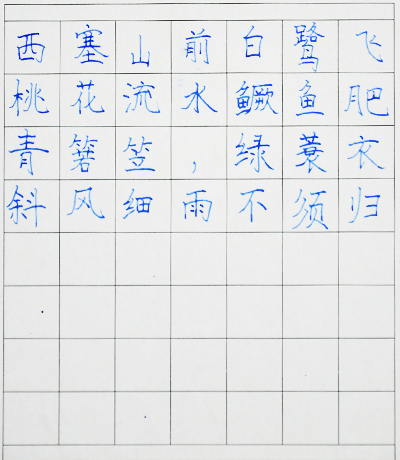 西塞山前白鹭飞
桃花流水鳜鱼肥
青箬笠，绿蓑衣
斜风细雨不须归